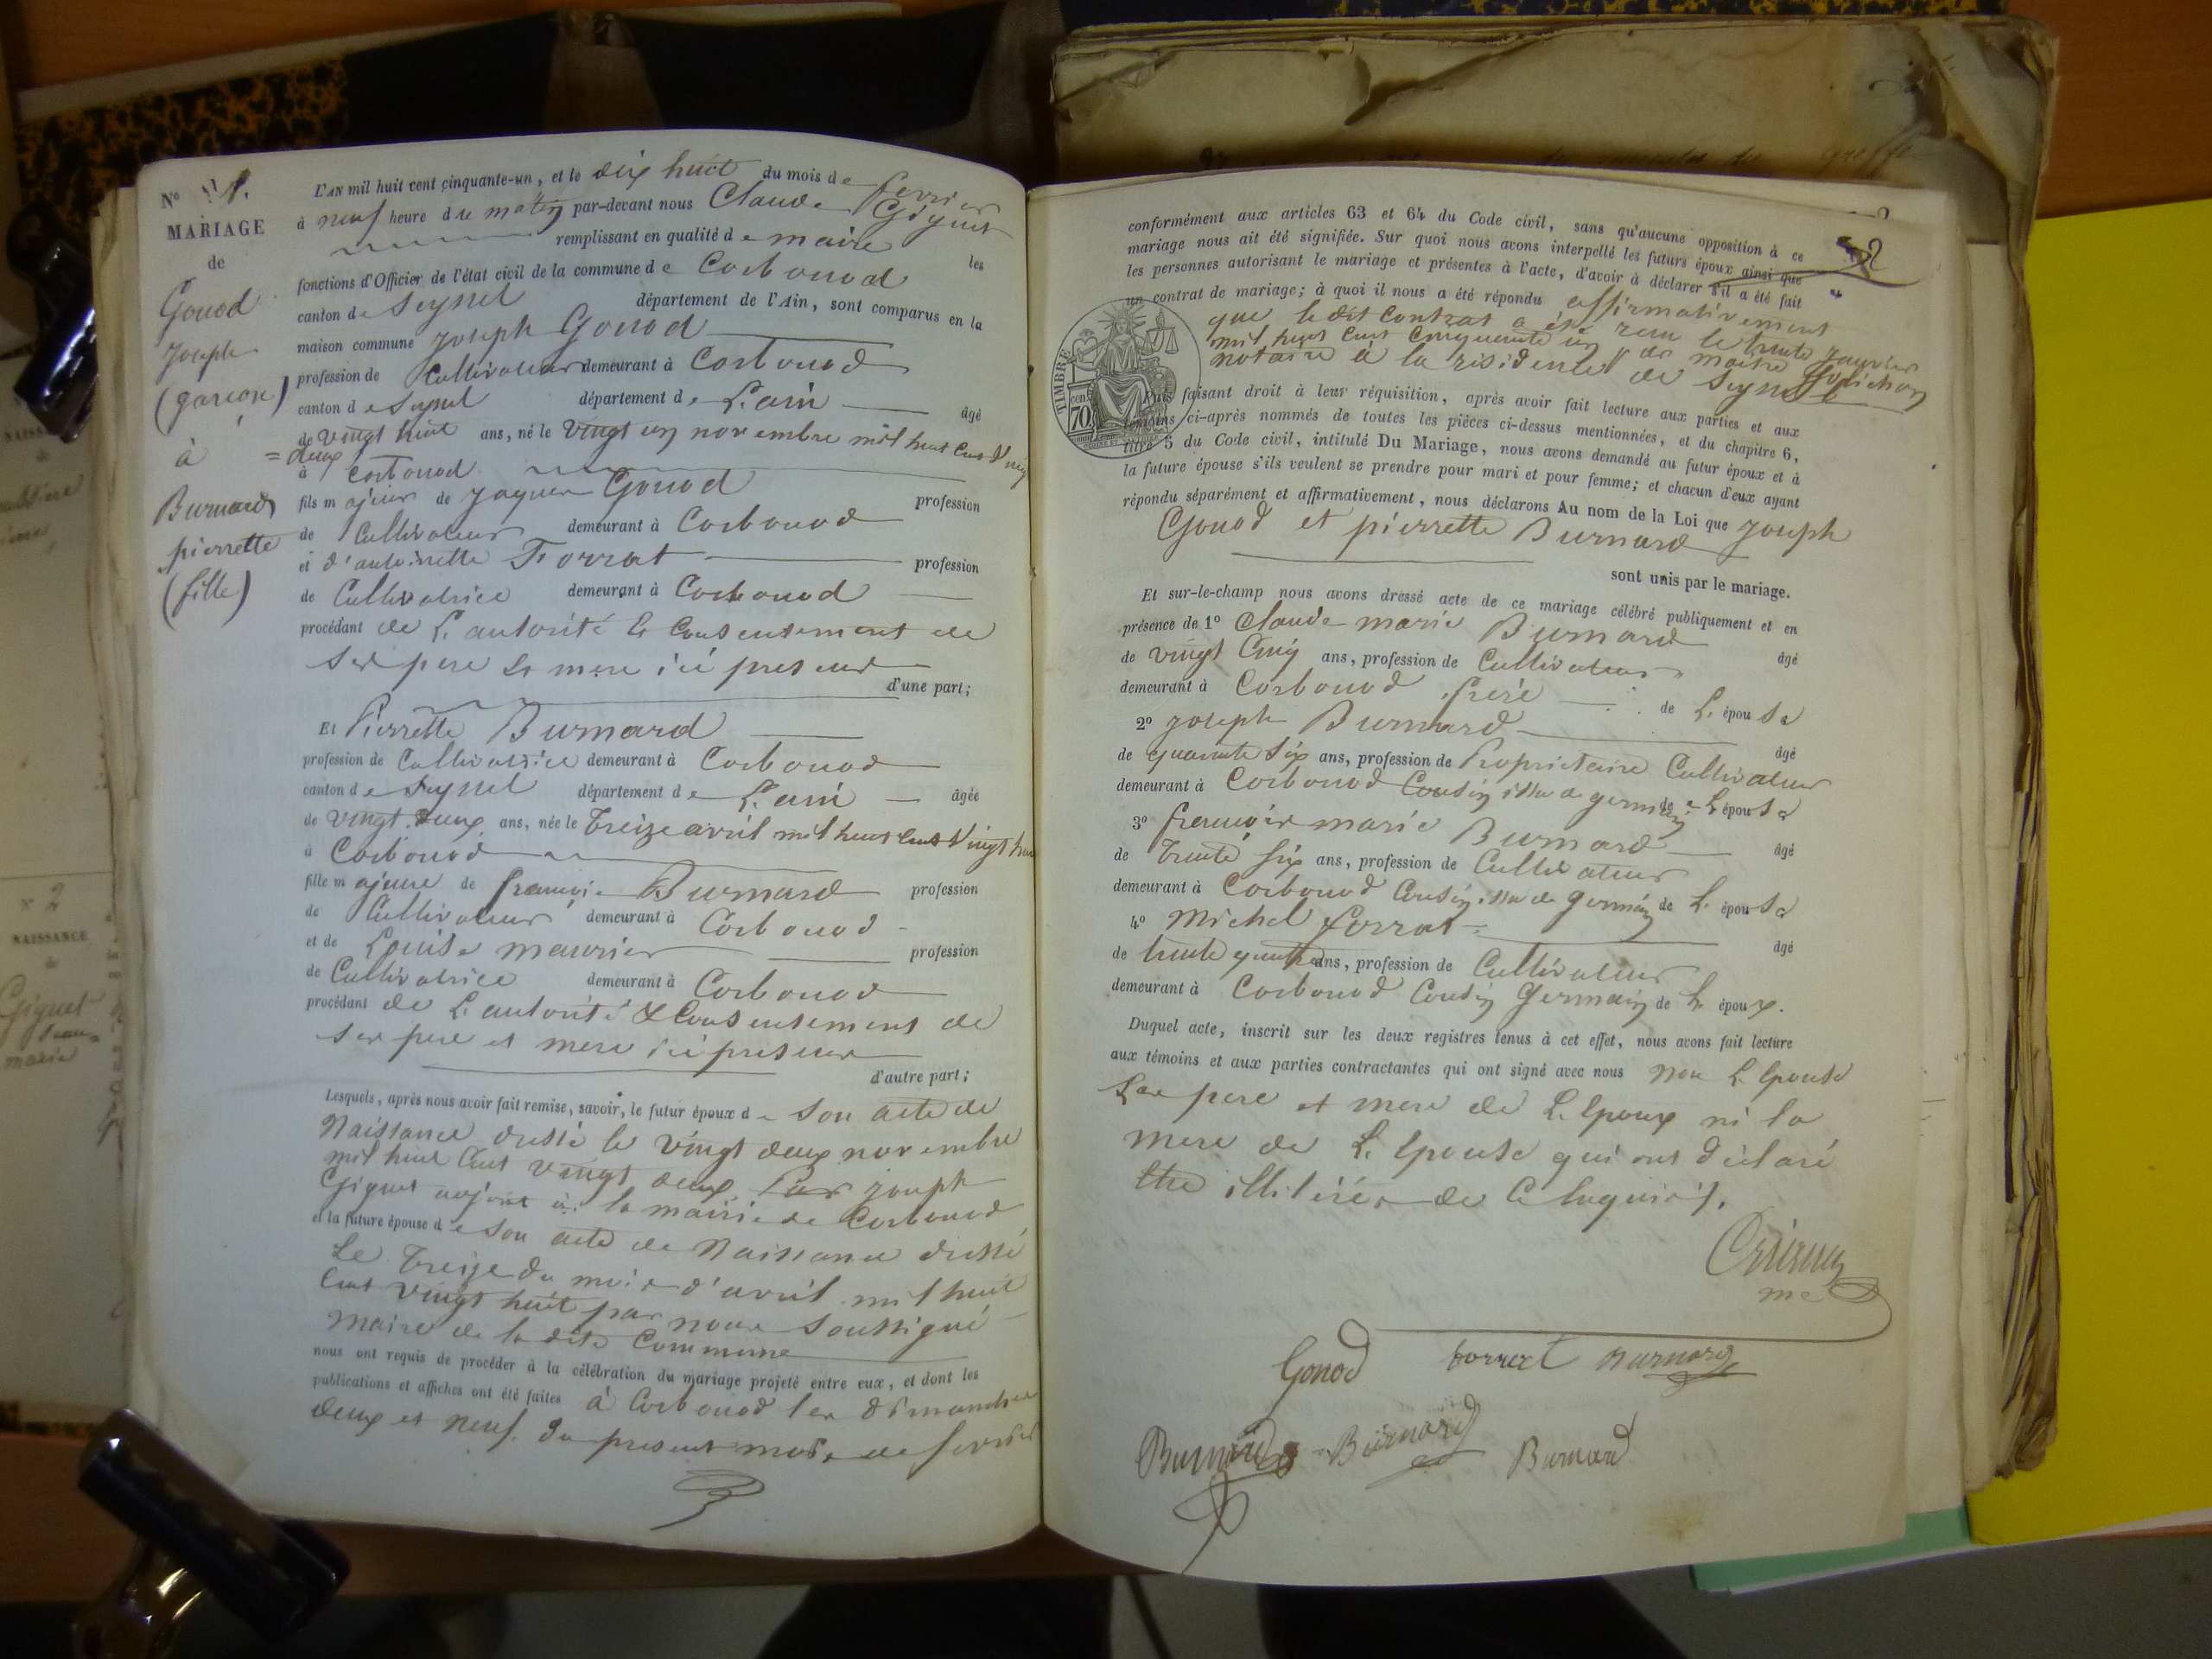 N° 1.
MARIAGE
de
Gonod
Joseph
(garçon)
à
Burnard
pierrette
(fille)
L'AN mil huit cent cinquante-un, et le dix huit du mois de fevrier
à neuf heure du matin par-devant nous Claude Giguet
remplissant en qualité de maire les
fonctions d'Officier de l'état civil de la commune de Corbonod
canton de Seyssel département de l'Ain, sont comparus en la
maison commune Joseph Gonod
profession de Cultivateur demeurant à Corbonod
canton de Seyssel département de L'ain âgé
de vingt huit ans, né le vingt un novembre mil huit cent vingt
= deux
à Corbonod
fils majeur de Jaques Gonod profession
de Cultivateur demeurant à Corbonod
et d'antoinette Forrat profession
de Cultivatrice demeurant à Corbonod
procédant de L'autorité & Consentement de
ses pere & mere ici present
d'une part;
Et Pierrette Burnard
profession de Cultivatrice demeurant à Corbonod
canton de Seyssel département de L'ain âgée
de vingt deux ans, née le treize avril mil huit cent vingt huit
à Corbonod
fille majeure de françois Burnard profession
de Cultivateur demeurant à Corbonod
et de Louise maurier profession
de Cultivatrice demeurant à Corbonod
procédant de L'autorité & Consentement de
ses pere et mere ici present
d'autre part;
Lesquels, après nous avoir fait remise, savoir, le futur époux de son acte de
Naissance dressé le vingt deux novembre
mil huit Cent vingt deux par joseph
Giguet adjoint à la mairie de Corbonod
et la future épouse de son acte de Naissance dressé
Le treize du mois d'avril mil huit
Cent vingt huit par nous soussigné
Maire de la dite Commune
nous ont requis de procéder à la célébration du mariage projeté entre eux, et dont les
publications et affiches ont été faites à Corbonod les dimanches
deux et neuf du present mois de fevrier
2
conformément aux articles 63 et 64 du Code civil, sans qu'aucune opposition à ce
mariage nous ait été signifiée. Sur quoi nous avons interpellé les futurs époux ainsi que
les personnes autorisant le mariage et présentes à l'acte, d'avoir à déclarer s'il a été fait
un contrat de mariage; à quoi il nous a été répondu affirmativement
que le dit contrat a été recu le trente janvier
mil huit cent cinquante un de maitre
notaire à la residente de Seyssel
Puis faisant droit à leur réquisition, après avoir fait lecture aux parties et aux
témoins ci-après nommés de toutes les pièces ci-dessus mentionnées, et du chapitre 6,
titre 5 du Code civil, intitulé Du Mariage, nous avons demandé au futur époux et à
la future épouse s'ils veulent se prendre pour mari et pour femme; et chacun d'eux ayant
répondu séparément et affirmativement, nous déclarons Au nom de la Loi que joseph
Gonod et pierrette Burnard
sont unis par le mariage.
Et sur-le-champ nous avons dressé acte de ce mariage célébré publiquement et en
présence de 1° Claude marie Burnard âgé
de vingt Cinq ans, profession de Cultivateur
demeurant à Corbonod frere de L'épouse
2° joseph Burnard âgé
de quarante six ans, profession de Proprietaire Cultivateur
demeurant à Corbonod Cousin issu de germain de L'épouse
3° francois marie Burnard âgé
de trente six ans, profession de Cultivateur
demeurant à Corbonod Cousin issu de germain de L'épouse
4° Michel forrat âgé
de trente quatre ans, profession de Cultivateur
demeurant à Corbonod Cousin Germain de L'époux.
Duquel acte, inscrit sur les deux registres tenus à cet effet, nous avons fait lecture
aux témoins et aux parties contractantes qui ont signé avec nous non L'Epouse
Les pere et mere de L'Epoux ni la
mere de L'Epouse qui ont déclaré
être illitérés de Ce Enquis.
TIMBRE
70 cent
Gonod forrat Burnard
Burnard Burnard Burnard
N° 2
NAISSANCE
de
Giguet
marie